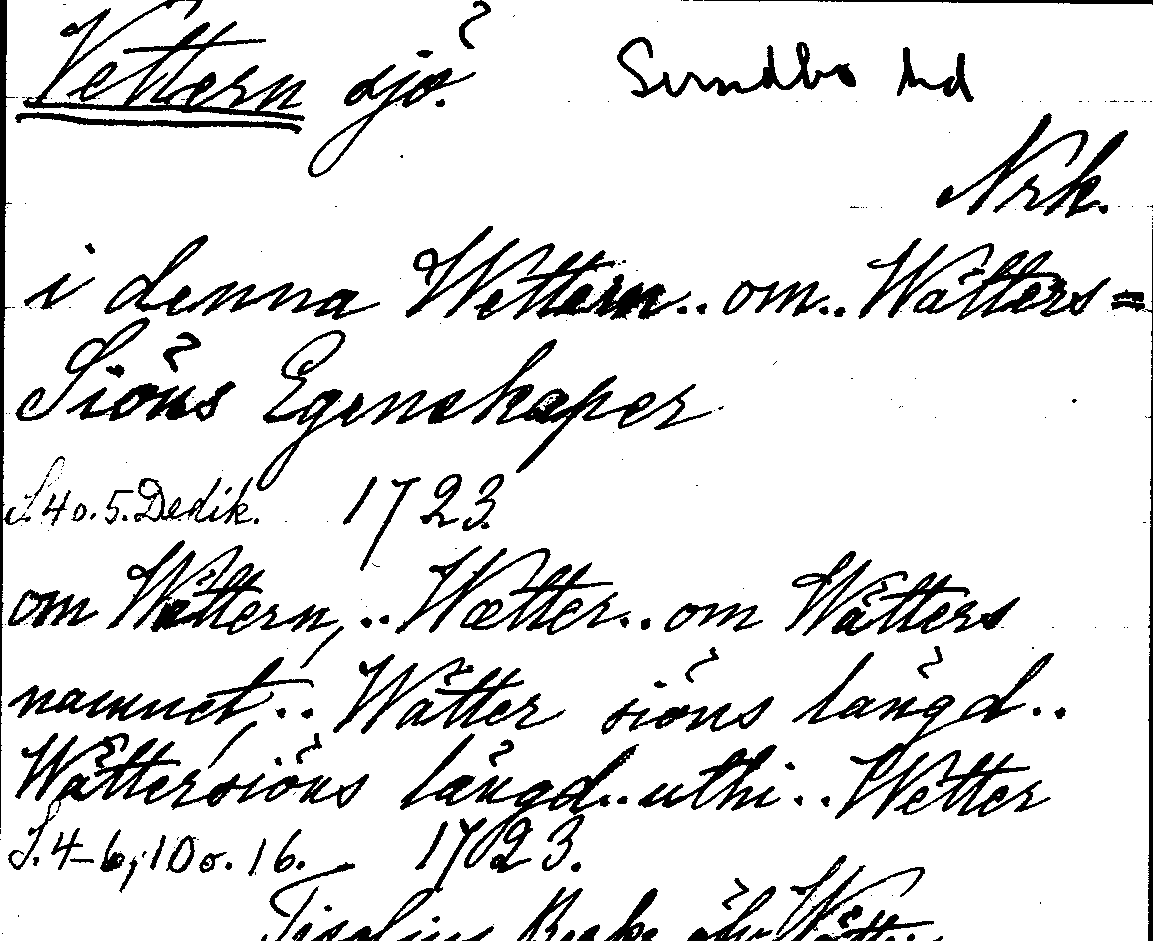 Vettern sjö. Sundbo hd
Nrk.
i denna Wettern.. om.. Wätters=
Siöns Egenskaper
S. 4 o. 5. Dedik. 1723.
om Wättern, .. Wætter.. om Wätters
namnet, .. Wätter siöns längd..
Wättersiöns längd.. uthi .. Wetter
S. 4-6, 10 o. 16. 1723.
Tiselius